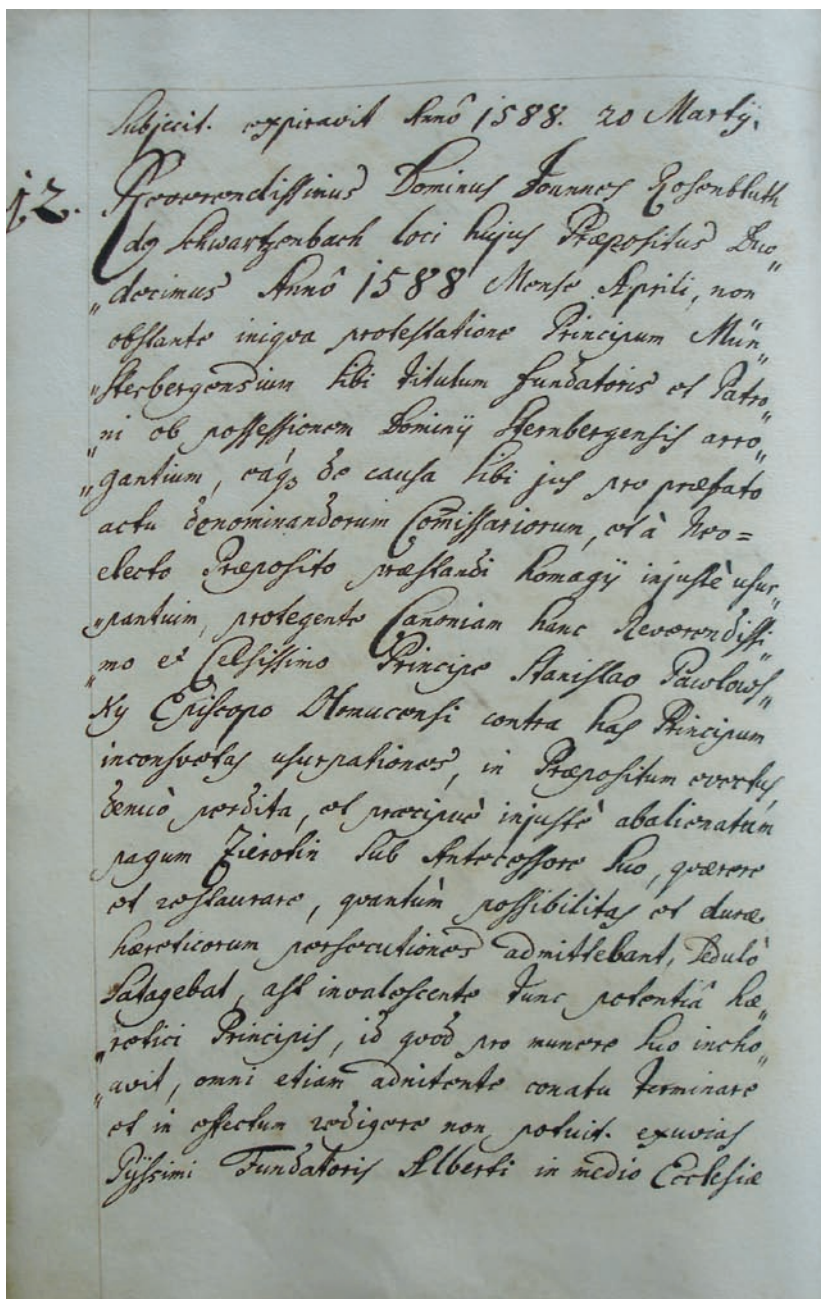 Subjecit. expiravit Annô 1588. 20 Martÿ.
12. Reverendissimus Dominus Joannes Rosenbluth
de Schwartzenbach loci hujus Præpositus Duo„
„decimus Annô 1588 Mense Aprili, non
obstante iniqva protestatione Principum Mün„
„sterbergensium sibi titulum fundatoris et Patro„
„ni ob possessionem Dominÿ Sternbergensis arro„
„gantium, eaq3 de causa sibi jus pro præfato
actu denominandorum Com̄issariorum, et à Neo=
electo Præposito præstandi homagÿ injustè usur„
„pantuim, protegente Canoniam hanc Reverendissi„
„mo et Celsissimo Principe Stanislao Pawlows„
Ky Episcopo Olomucensi contra has Principum
inconsvetas usurpationes, in Præpositum evectus,
denuò perdita, et præcipuè injustè abalienatum
pagum Zierotin sub Antecessore suo, qværere
et restaurare, qvantùm possibilitas et duræ
hæreticorum persecutiones admittebant, Sedulò
Satagebat, ast invalescente tunc potentiâ hæ„
„retici Principis, id qvod pro munere suo incho„
„avit, omni etiam adnitente conatu terminare
et in effectum redigere non potuit. exuvias
Pÿssimi Fundatoris Alberti in medio Ecclesiæ